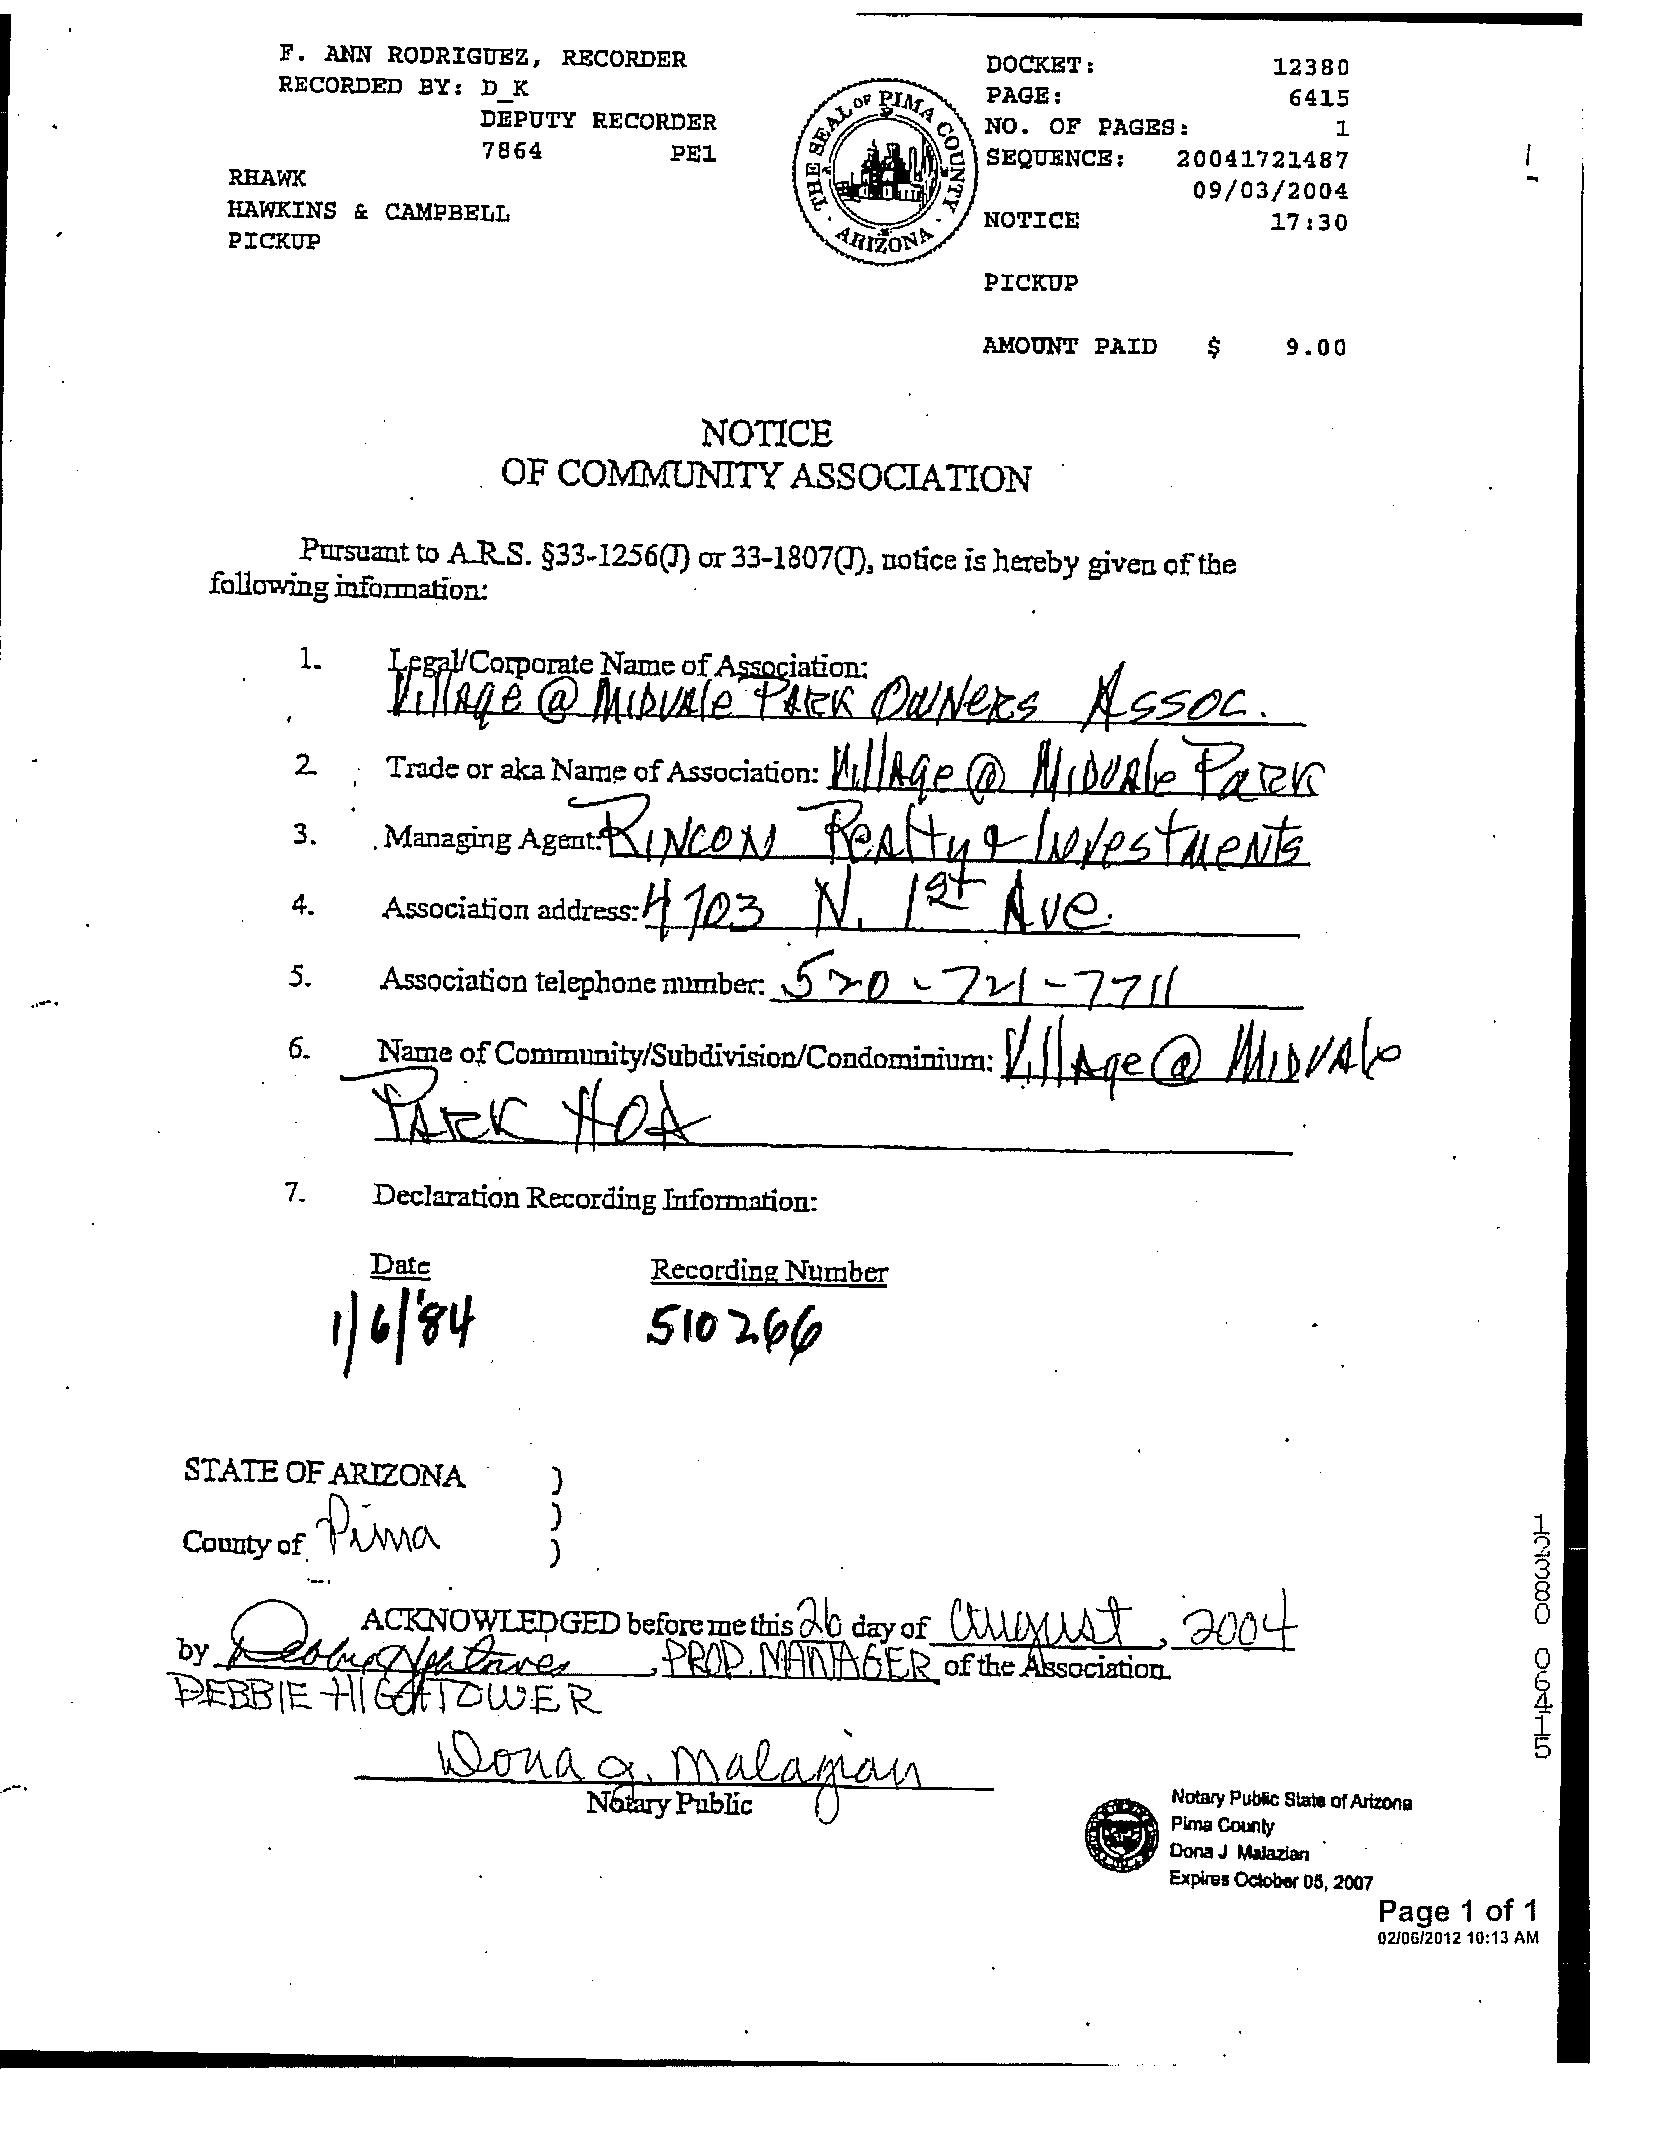 F. ANN RODRIGUEZ, RECORDER
RECORDED BY: D_K
DEPUTY RECORDER
7864 PE1
RHAWK
HAWKINS & CAMPBELL
PICKUP
THE SEAL OF PIMA COUNTY
ARIZONA
DOCKET: 12380
PAGE: 6415
NO. OF PAGES: 1
SEQUENCE: 20041721487
09/03/2004
NOTICE 17:30
PICKUP
AMOUNT PAID $ 9.00
NOTICE
OF COMMUNITY ASSOCIATION
Pursuant to A.R.S. §33-1256(J) or 33-1807(J), notice is hereby given of the
following information:
1. Legal/Corporate Name of Association:
Village @ Midvale Park Owners Assoc.
2. Trade or aka Name of Association: Village @ Midvale Park
3. Managing Agent: Rincon Realty & Investments
4. Association address: 4703 N. 1st Ave.
5. Association telephone number: 520-721-7711
6. Name of Community/Subdivision/Condominium: Village @ Midvale
Park HOA
7. Declaration Recording Information:
Date Recording Number
1/6/'84 510266
STATE OF ARIZONA )
)
County of Pima )
ACKNOWLEDGED before me this 26 day of August, 2004
by Debbie Hightower, PROP. MANAGER of the Association.
DEBBIE HIGHTOWER
Dona J. Malazian
Notary Public
Notary Public State of Arizona
Pima County
Dona J Malazian
Expires October 05, 2007
12380 06415
Page 1 of 1
02/06/2012 10:13 AM